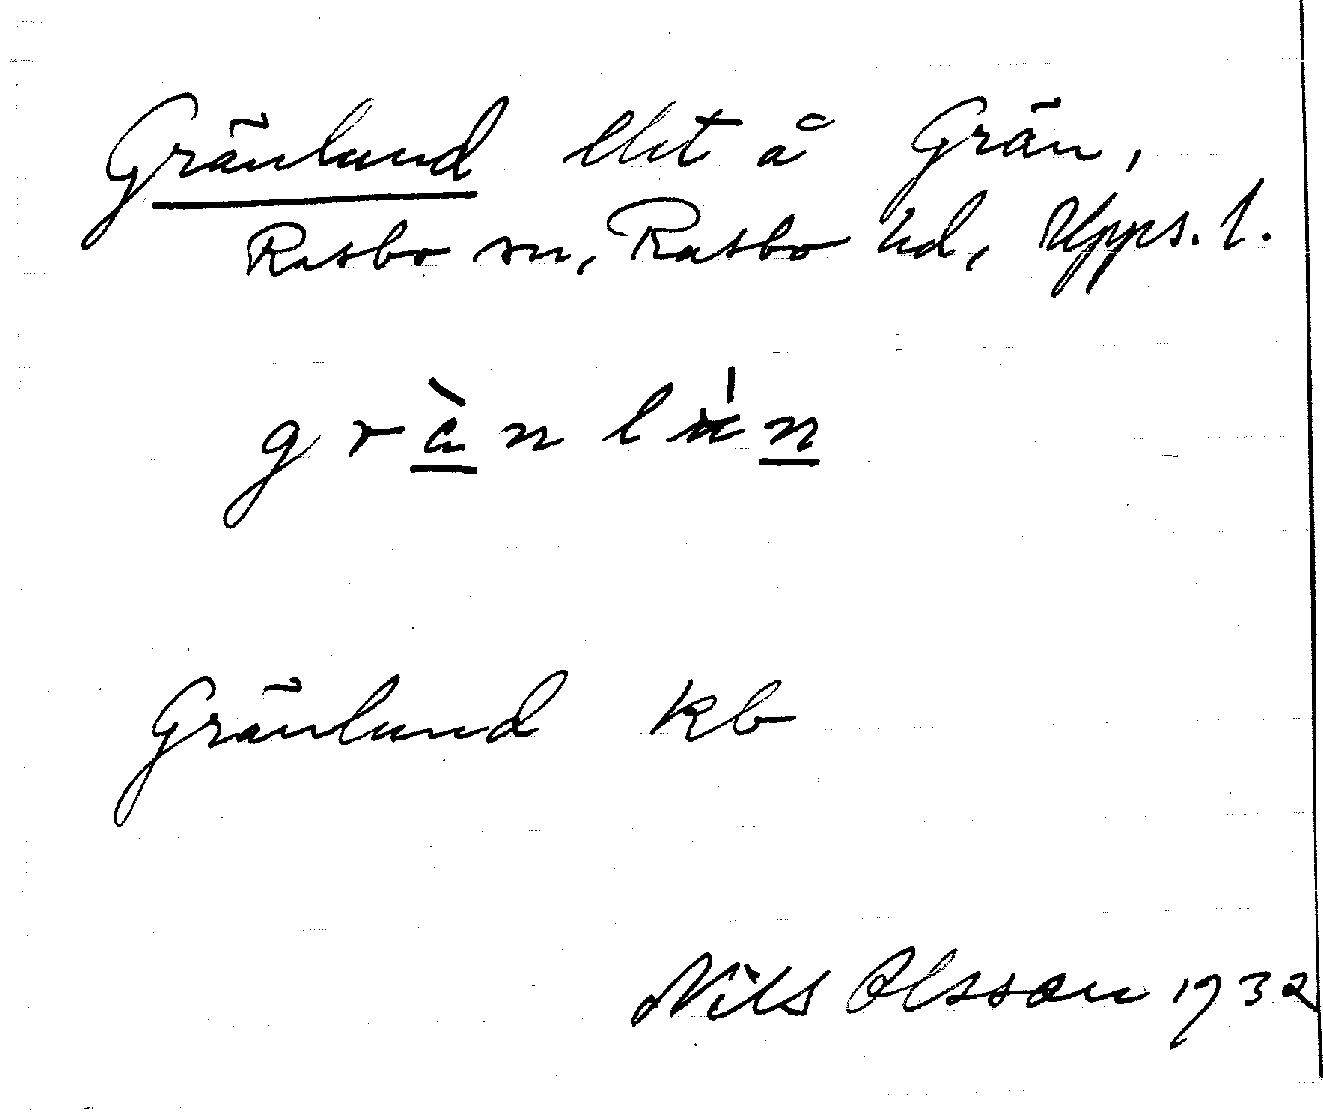 Gränlund llet å Grän,
Rasbo sn, Rasbo hd, Upps. l.
gr<u>à</u>nlú<u>n</u>
Gränlund kb
Nils Olsson 1932